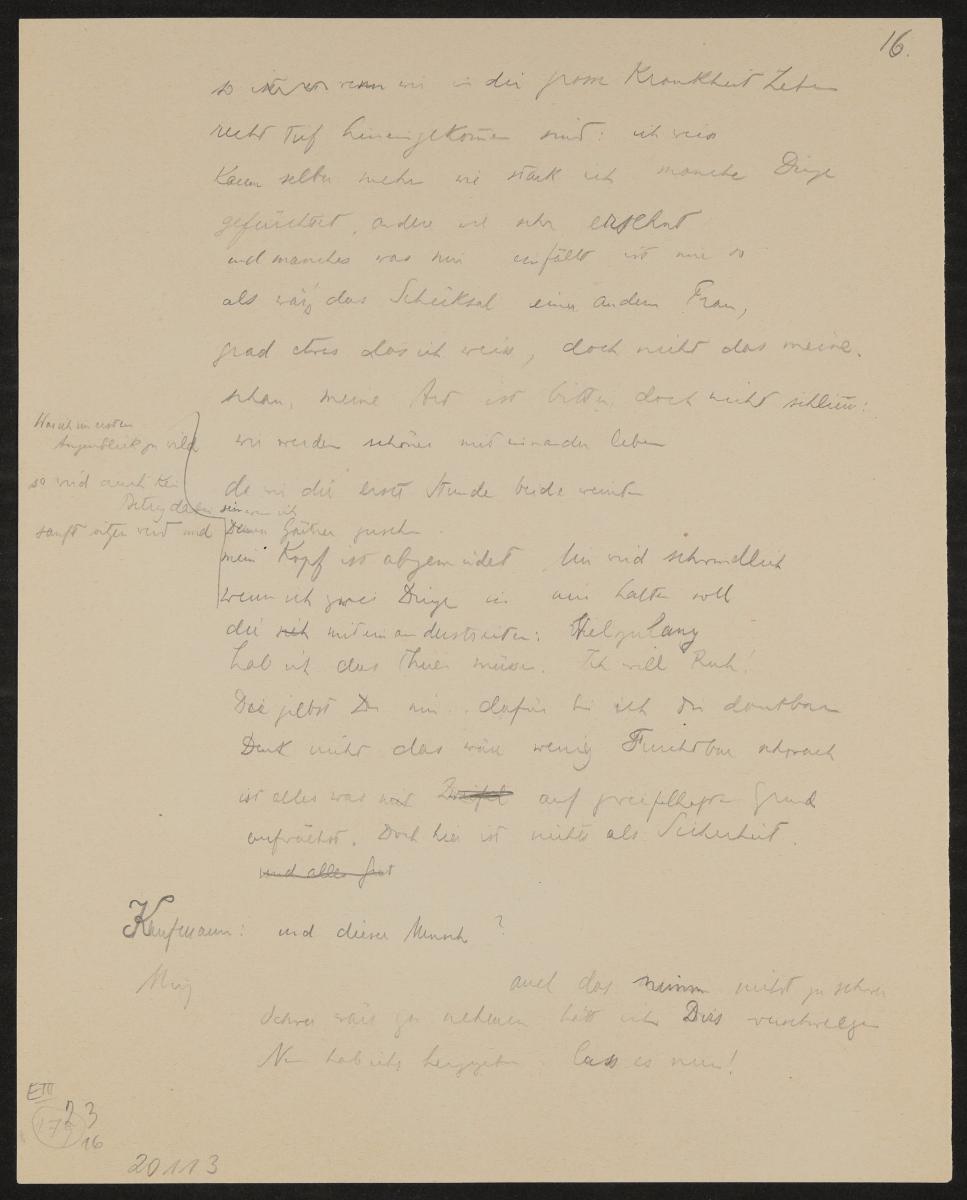 16.
so ist es wenn wir in die grosse Krankheit Leben
recht tief hineingekommen sind: ich weiss
kaum selber mehr wie stark ich manche Dinge
gefürchtet, andere wie sehr ersehnt
und manches was mir einfällt ist mir so
als wär's das Schicksal einer andern Frau,
grad etwas das ich weiss, doch nicht das meine.
schau, meine Art ist bitter doch nicht schlimm:
Was ich im ersten
Augenblick zu wild
wir werden schönes miteinander leben
so wird auch kein
Betrug dabei sein wenn ich
sanft sitzen werd und
da wir die erste Stunde beide weinten
Deinen Gärtner zusehn.
mein Kopf ist abgemüdet. Mir wird schwindlich
wenn ich zwei Dinge in mir halten soll
die sich miteinander streiten: Viel zu lang
hab ich das thuen müssen. Ich will Ruh!
Die giebst Du mir. dafür bin ich Dir dankbar
Denk nicht das wäre wenig Furchtbar schwach
ist alles was mit Zweifel auf zweifelhaftem Grund
aufwächst. Doch hier ist nichts als Sicherheit.
und alles gut
Kaufmann: und dieser Mensch?
auch das nimm nicht zu schwer
Schwer wär's zu nehmen hätt ich Dirs verschwiegen
Nun hab ichs hergegeben. lass es nun!
E III
23
16
20113